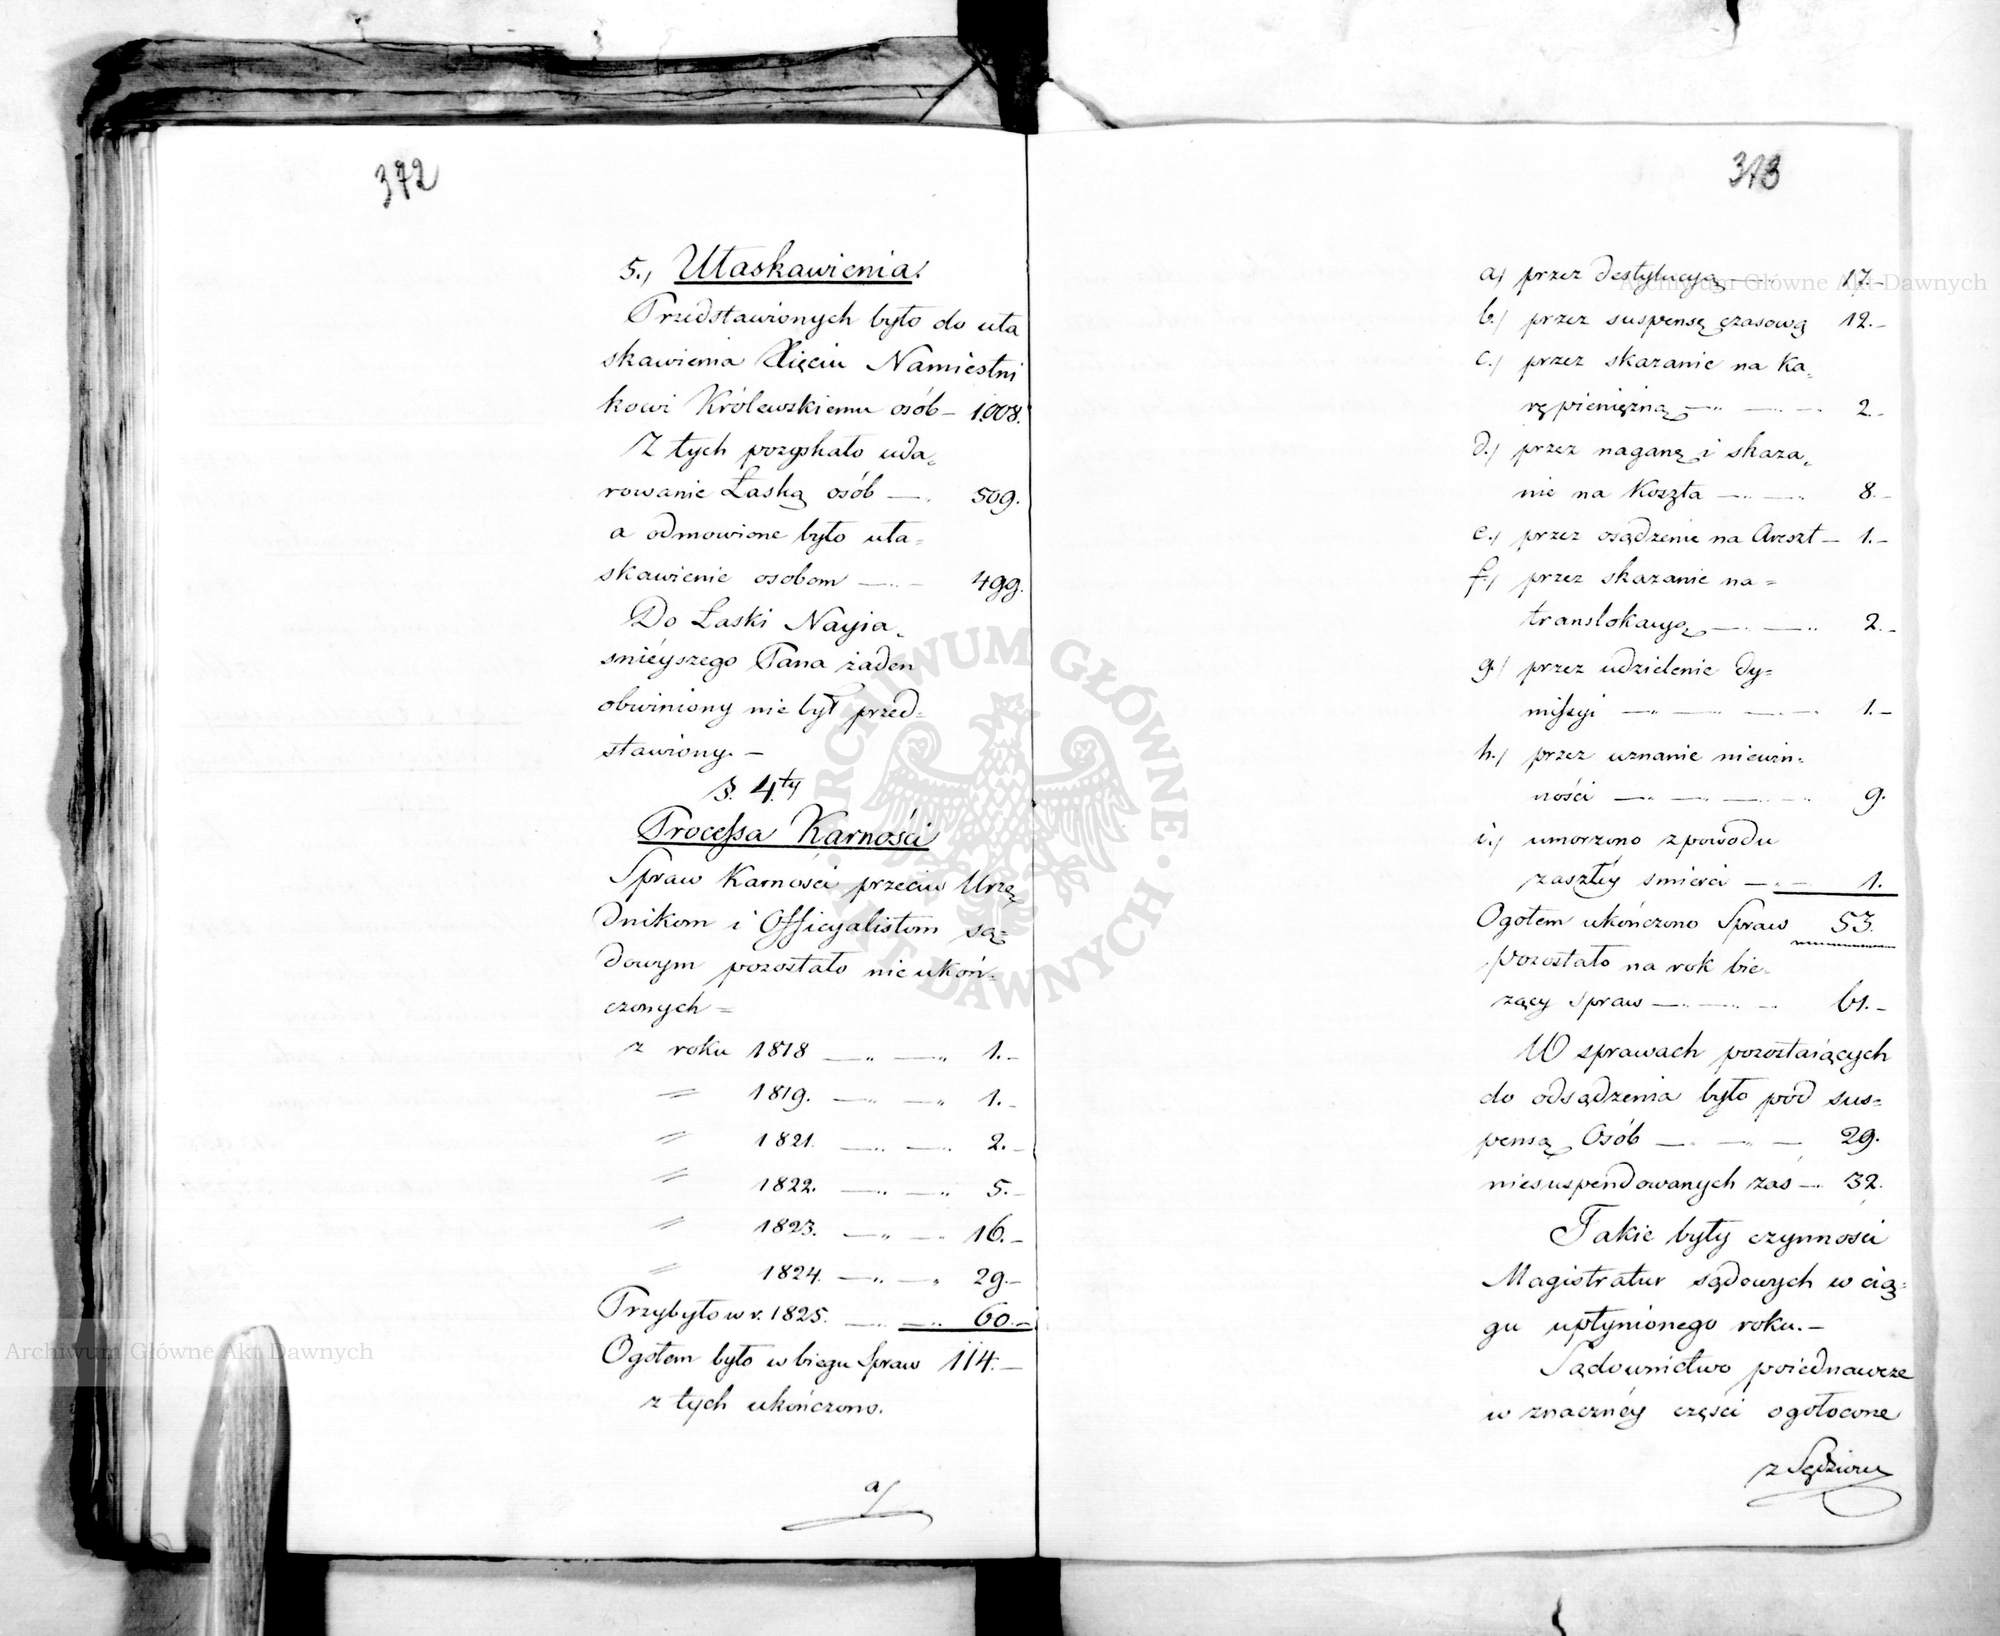 372
5., Ułaskawienia.
Przedstawionych było do uła
skawienia Xięciu Namiestni
kowi Królewskiemu osób – 1008.
Z tych pozyskało uda=
rowanie Łaską osób — 509.
a odmowione było uła=
skawienie osobom — 499.
Do Łaski Nayia=
śnieyszego Pana żaden
obwiniony nie był przed=
stawiony. –
§. 4ty
Processa Karności
Spraw Karności przeciw Urzę
dnikom i Officyalistom są=
dowym pozostało nie ukoń=
czonych =
z roku 1818 — „ — „ 1. –
〃 1819. — „ — „ 1. –
〃 1821. — „ — „ 2. –
〃 1822. — „ — „ 5. –
〃 1823. — „ — „ 16. –
〃 1824. — „ — „ 29. –
Przybyło w r. 1825. — „ — „ 60. –
Ogołem było w biegu Spraw 114. –
z tych ukończono.
a/
373
a/ przez destytucyą — 17 –
b./ przez suspensę czasową 12. –
c./ przez skazanie na Ka=
rę pieniężną — „ — „ – 2. –
d./ przez naganę i skaza=
nie na Koszta — „ — „ 8. –
e./ przez osądzenie na Areszt – 1. –
f./ przez skazanie na =
translokacyę — „ — „ 2. –
g./ przez udzielenie dy=
missyi — „ — „ — „ – 1. –
h./ przez uznanie niewin=
ności — „ — „ — „ 9.
i./ umorzono z powodu
zaszłey śmierci — „ – 1.
Ogołem ukończono Spraw 53.
pozostało na rok bie=
żący Spraw — „ — „ – 61. –
W sprawach pozostaiących
do odsądzenia było pod sus=
pensą Osób — „ — „ – 29.
niesuspendowanych zaś – „ 32.
Takie były czynności
Magistratur sądowych w cią=
gu upłynionego roku. –
Sądownictwo poiednawcze
w znaczney części ogołocone
z Sędziow
Archiwum Główne Akt Dawnych
Archiwum Główne Akt Dawnych
ARCHIWUM GŁÓWNE · AKT DAWNYCH ·